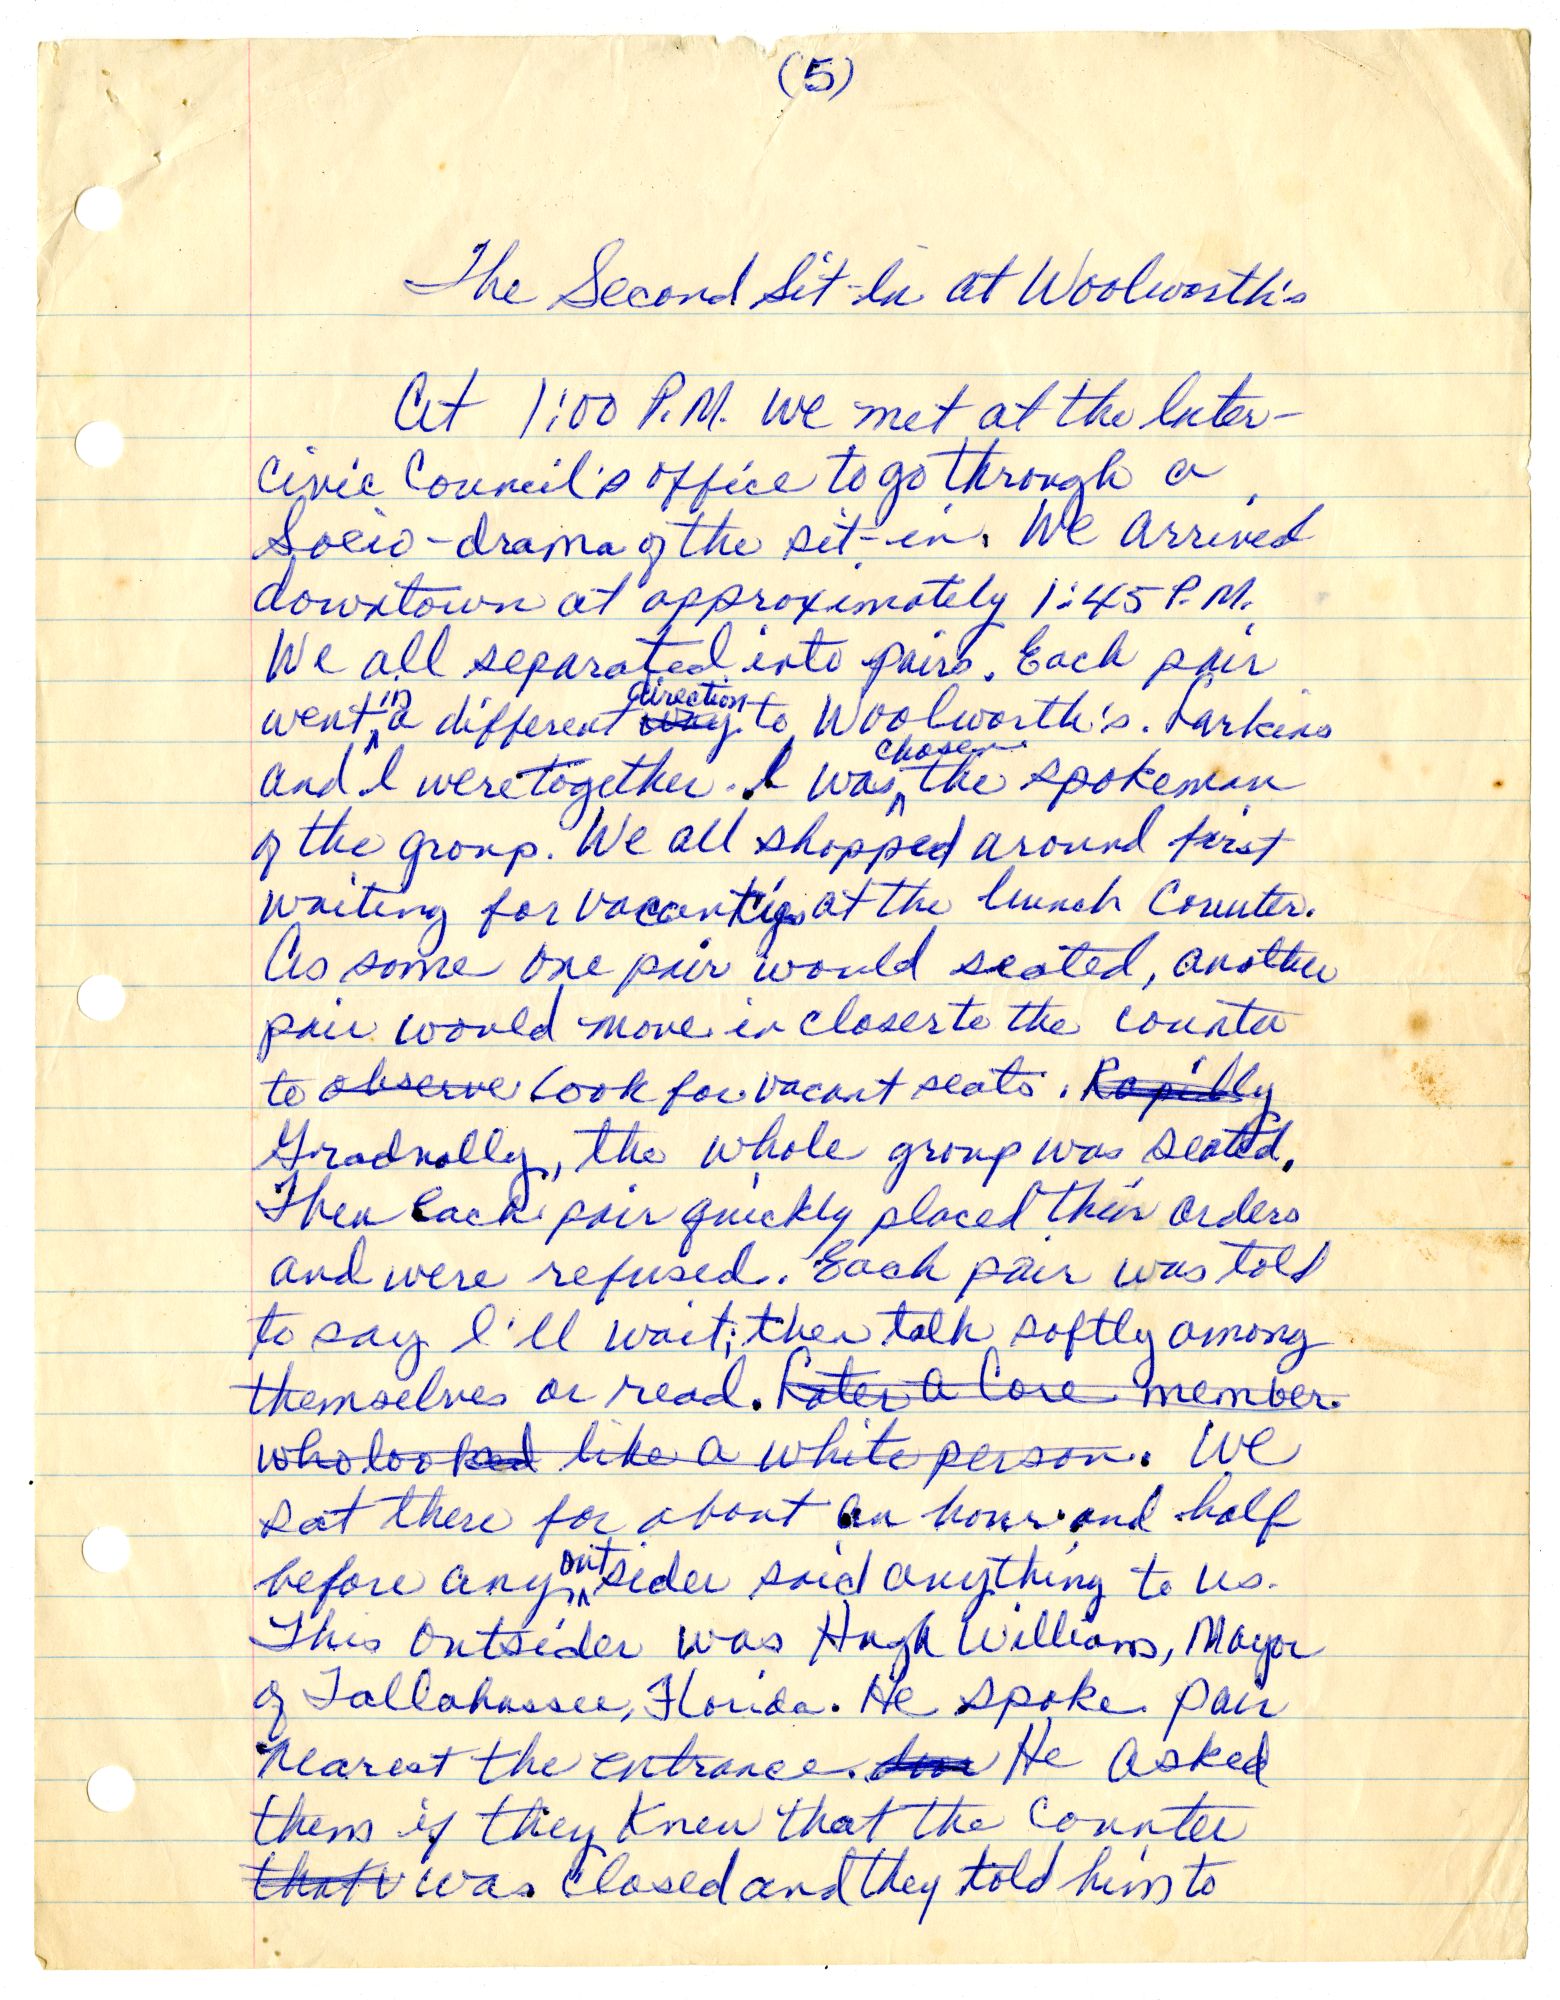 (5)
The Second Sit-In at Woolworth's
At 1:00 P.M. we met at the Inter-
Civic Council's office to go through a
Socio-drama of the sit-in. We arrived
downtown at approximately 1:45 P.M.
We all separated into pairs. Each pair
went in a different way direction to Woolworth's. Larkins
and I were together. I was chosen the spokeman
of the group. We all shopped around first
waiting for vacanties at the lunch Counter.
As some one pair would seated, another
pair would move in closer to the counter
to observe look for vacant seats. Rapidly
Gradually, the whole group was seated.
Then each pair quickly placed their orders
and were refused. Each pair was told
to say I'll wait; then talk softly among
themselves or read. Later a Core member.
who looked like a white person. We
sat there for about an hour and half
before any outsider said anything to us.
This outsider was Hugh Williams, Mayor
of Tallahassee, Florida. He spoke pair
nearest the entrance. He asked
them if they knew that the Counter
that was closed and they told him to